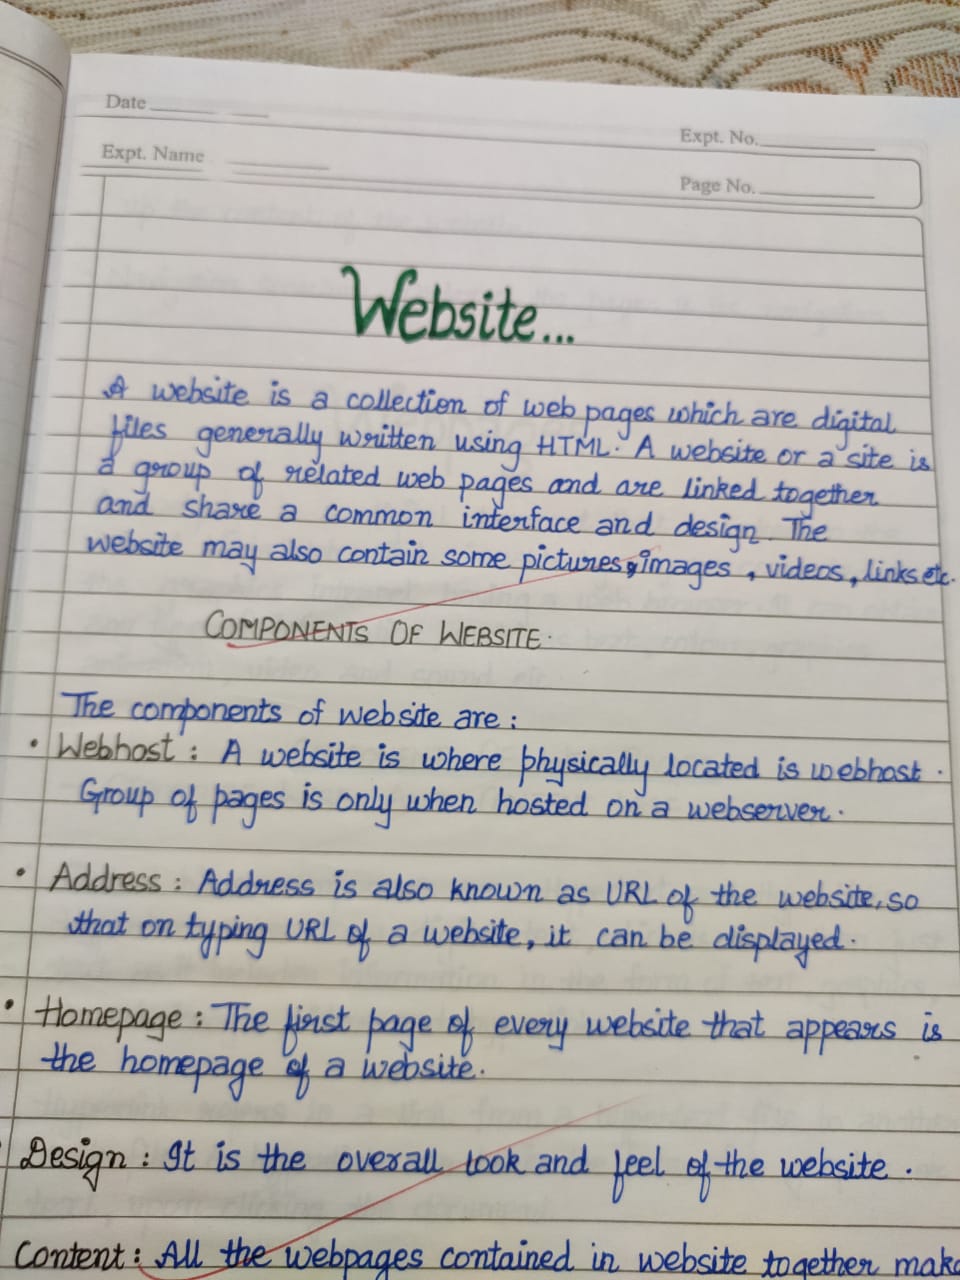 Date
Expt. No.
Expt. Name
Page No.
Website...
A website is a collection of web pages which are digital
files generally written using HTML. A website or a site is
a group of related web pages and are linked together
and share a common interface and design. The
website may also contain some pictures, images, videos, links etc.
COMPONENTS OF WEBSITE.
The components of website are:
• Webhost: A website is where physically located is webhost.
Group of pages is only when hosted on a webserver.
• Address: Address is also known as URL of the website, so
that on typing URL of a website, it can be displayed.
• Homepage: The first page of every website that appears is
the homepage of a website.
Design: It is the overall look and feel of the website.
Content: All the webpages contained in website together make